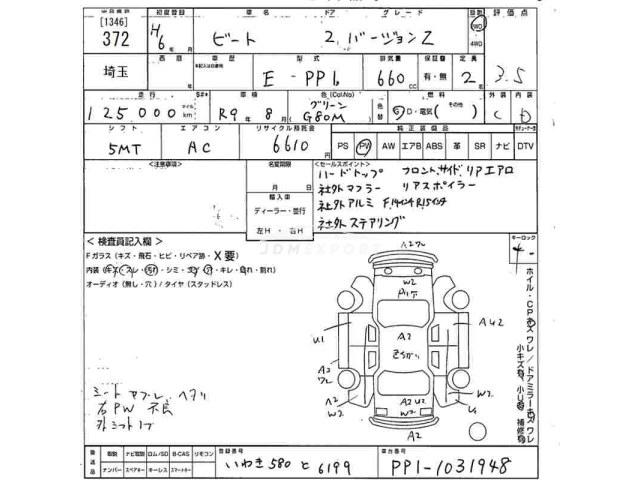 [1346] 初度登録 車名 ドア グレード 駆動 評価点
372 H6年 月 ビート 2. バージョンZ 4WD 3.5
埼玉 車歴 型式 排気量 保証書 定員
E - PP1 660 CC 有・無 2 名
走行 車検 色(Col.No) 燃料 外装 内装
125,000 km R9年 8月 グリーン G80M 色替 G D・電気( その他 ) C D
シフト エアコン リサイクル預託金 純正装備品
5MT AC 6610 円 PS PW AW エアB ABS 革 SR ナビ DTV
<注意事項> 名変期限 <セールスポイント>
月 日
輸入車
ディーラー・並行
左H・右H
ハードトップ フロント,サイド,リアエアロ
社外マフラー リアスポイラー
社外アルミ F,14インチ R,15インチ
社外ステアリング
<検査員記入欄>
Fガラス(キズ・飛石・ヒビ・リペア跡・X要)
内装(キズ・スレ・汚れ・シミ・コゲ・穴・キレ・色あせ・割れ)
オーディオ(無し・穴)/タイヤ(スタッドレス)
キーロック
ホイル・CPキズワレ/ドアミラーキズワレ
小キズ有、小U有、補修有
W2
A2
U1
A2
ワレ
A2
W2
A2 U2
W2
A2
AU2
W2
U1
シートヤブレ ヘタリ
右PW 不良
外シフトノブ
後送品 取説 ナビ取説 ロム/SD B-CAS リモコン 登録番号 車台番号
ナンバー スペアキー キーレス スマートキー いわき 580 と 6199 PP1-1031948
JDM EXPORT